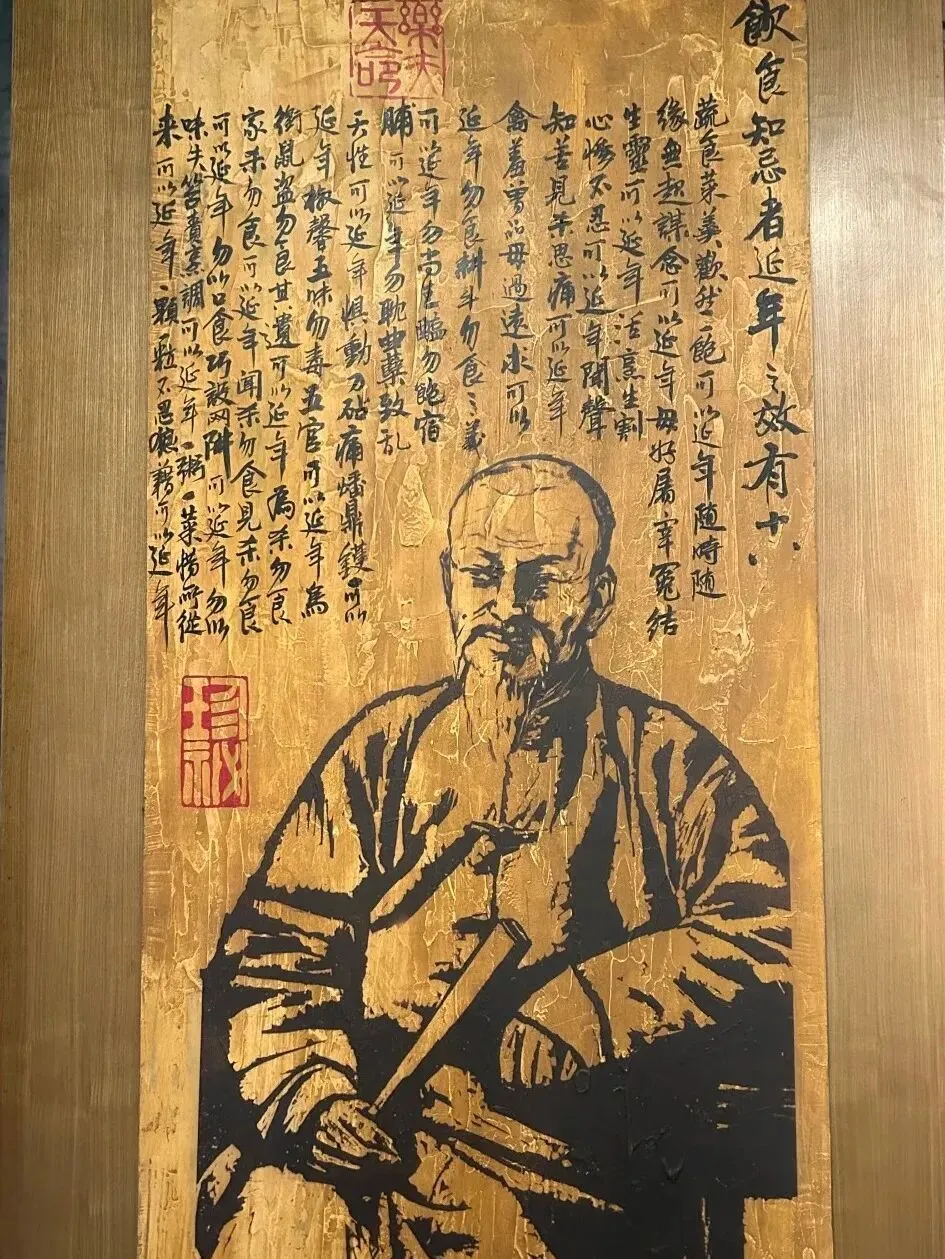 飲食知忌者延年之效有十八
蔬食菜羹歡然一飽可以延年随時随
缘無起謀念可以延年毋好屠宰冤结
生靈可以延年活烹生割
心慘不忍可以延年聞聲
知苦見杀思痛可以延年
禽羞曽品毋過遠求可以
延年勿食耕牛勿食三義
可以延年勿尚生勿飽宿
脯可以延年勿耽曲蘖致乱
天性可以延年惧動刀砧痛燔鼎鑊可以
延年椒馨五味勿毒五官可以延年鳥
銜鼠盗勿食其遺可以延年為杀勿食
家杀勿食可以延年闻杀勿食見杀勿食
可以延年勿以口食巧設网阱可以延年勿以
味失笞責烹調可以延年一粥一菜惜所從
来可以延年一颗一粒不忍狼藉可以延年
樂夫
天命